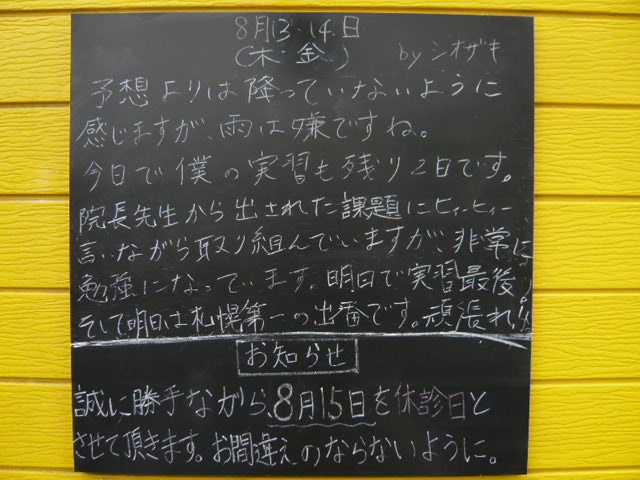 8月13・14日
(木・金) by シオザキ
予想よりは降っていないように
感じますが、雨は嫌ですね。
今日で僕の実習も残り2日です。
院長先生から出された課題にヒィーヒィー
言いながら取り組んでいますが、非常に
勉強になっています。明日で実習最後!
そして明日は札幌第一の出番です。頑張れ!!
お知らせ
誠に勝手ながら、8月15日を休診日と
させて頂きます。お間違えのならないように。